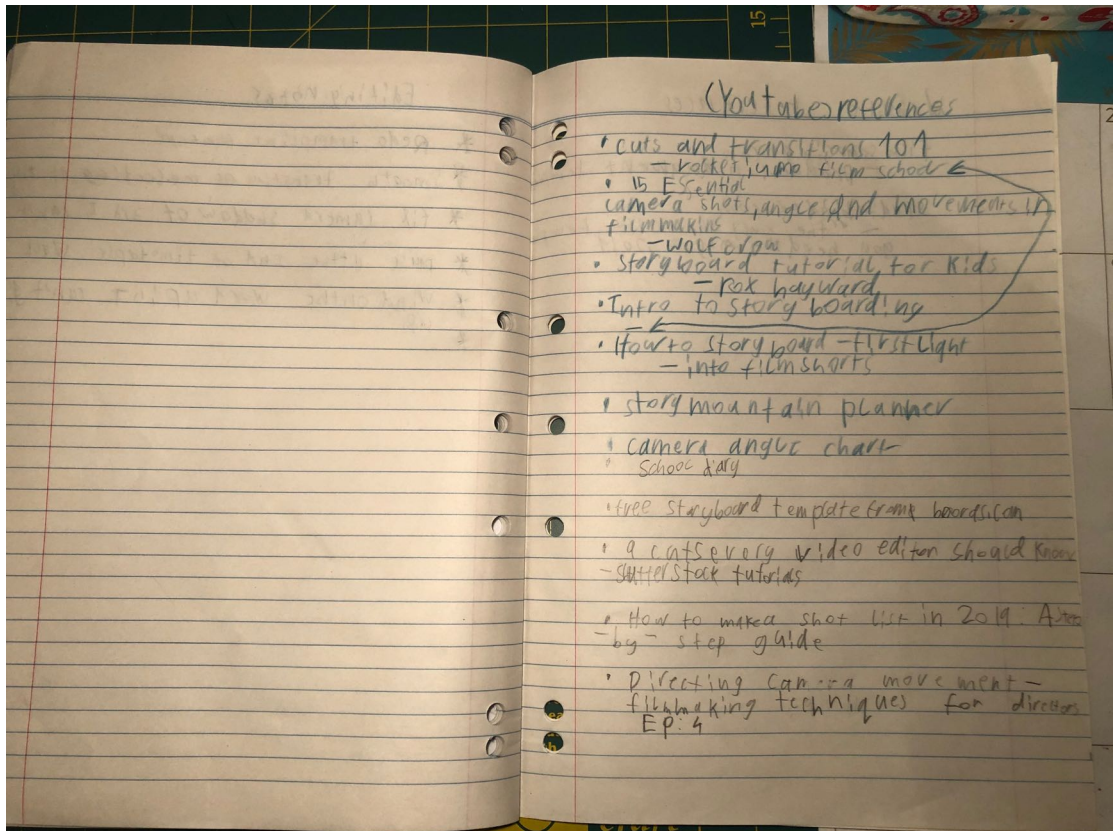 15
Editing Notes
(Youtube) references
• cuts and transitions 101
– rocketjump film school
• 15 Essential
camera shots, angle and movements in
filmmaking
– wolfcrow
• storyboard tutorial for kids
– rox hayward
• Intro to story boarding
–
• How to story board – first Light
– into film shorts
• story mountain planner
• camera angle chart
• school diary
• free storyboard template from boords.com
• 9 cuts every video editor should know
– shutterstock tutorials
• How to make a shot list in 2019: A step
– by – step guide
• Directing camera movement –
filmmaking techniques for directors
EP: 4